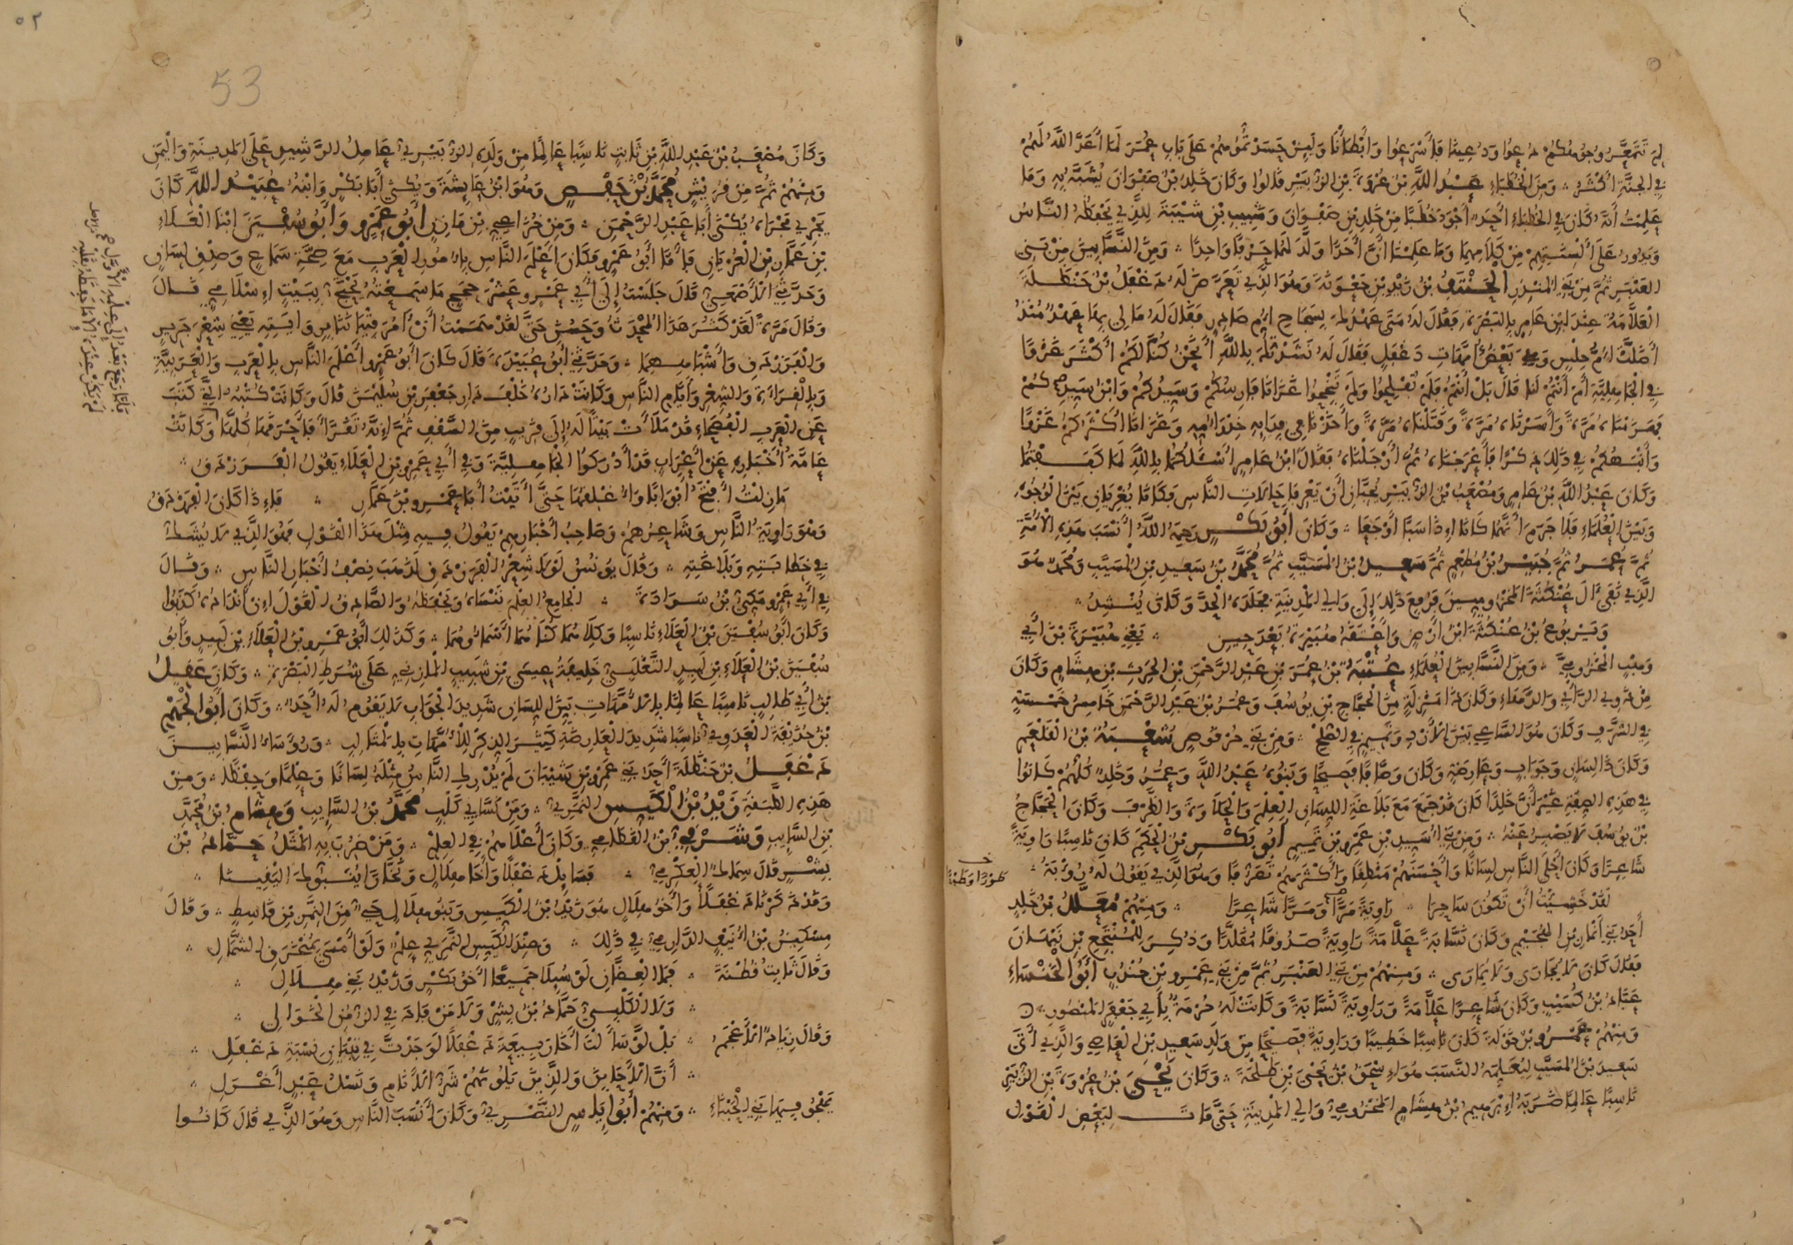 لم تتمعر وجوهكم دعوا ودعينا فأسرعوا وأبطأنا ولئن حسدتموهم على باب عمر لما أعد الله لهم
في الجنة أكثر ومن الخطباء عبد الله بن عروة بن الزبير قالوا وكان خلد بن صفوان يشبه به وما
علمت أنه كان في الخطباء أحد أجود خطبا من خلد بن صفوان وشبيب بن شيبة للذي يحفظه الناس
ويدور على ألسنتهم من كلامهما وما علمنا أن أحدا ولد لهما حرفا واحدا ومن النسابين من بني
العنبر ثم من بني المنذر الحنتف بن زيد بن جعونة وهو الذي تعرض له دغفل بن حنظلة
العلامة عند ابن عامر بالبصرة فقال له متى عهدك بسجاح أم صادر فقال له ما لي بها عهد منذ
أضلت أم حلس وهي بعض أمهات دغفل فقال له نشدتك بالله أنحن كنا لكم أكثر غزوا
في الجاهلية أم أنتم لنا قال بل أنتم فلم تفلحوا ولم تنجحوا غزانا فارسكم وسيدكم وابن سيدكم
فهزمناه مرة وأسرناه مرة وقتلناه مرة وأخذنا في فدائه خدر أمه وغزانا أكثركم غزوا
وأنبهكم في ذلك ذكرا فأعرجناه ثم أرجلناه فقال ابن عامر أسئلكما بالله لما كففتما
وكان عبد الله بن عامر ومصعب بن الزبير يحبان أن يعرفا حالات الناس فكانا يغريان بين الوجوه
وبين العلماء فلا جرم أنهما كانا إذا سبا أوجعا وكان أبو بكر رحمه الله أنسب هذه الأمة
ثم عمر ثم جبير بن مطعم ثم سعيد بن المسيب ثم محمد بن سعيد بن المسيب ومحمد هو
الذي نفى آل عنكثة المخزوميين فرفع ذلك إلى والي المدينة فجلده الحد وكان ينشد
ويربوع بن عنكثة ابن أرض وأعتقه هبيرة بعد حين يعني هبيرة بن أبي
وهب المخزومي ومن النسابين العلماء عتبة بن عمر بن عبد الرحمن بن الحرث بن هشام وكان
من ذوي الرأي والدهاء وكان ذا منزلة من الحجاج بن يوسف وعمر بن عبد الرحمن خامس خمسة
في الشرف وكان هو الساعي بين الأزد وتميم في الصلح ومن بني حرقوص شعبة بن القلعم
وكان ذا لسان وجواب وعارضة وكان وصافا فصيحا وبنوه عبد الله وعمر وخلد كلهم كانوا
في هذه الصفة غير أن خلدا كان قد جمع مع بلاغة اللسان العلم والحلاوة والظرف وكان الحجاج
بن يوسف لا يصبر عنه ومن بني أسيد بن عمرو بن تميم أبو بكر بن الحكم كان ناسبا راوية
شاعرا وكان أحلى الناس لسانا وأحسنهم منطقا وأكثرهم تصرفا وهو الذي يقول له رؤبة
طورا وطورا
لقد خشيت أن تكون ساحرا راوية مرا ومرا شاعرا ومنهم معلل بن خلد
أحد بني أنمار بن الهجيم وكان نسابة علامة راوية صدوقا مقلدا وذكر للمنتجع بن نبهان
فقال كان لا يجارى ولا يمارى ومنهم من بني العنبر ثم من بني عمرو بن جندب أبو الخنساء
عباد بن كسيب وكان شاعرا علامة وراوية نسابة وكانت له حرمة بأبي جعفر المنصور
ومنهم عمرو بن خولة كان ناسبا خطيبا وراوية فصيحا من ولد سعيد بن العاصي والذي أتى
سعيد بن المسيب ليعلمه النسب هو اسحق بن يحيى بن طلحة وكان يحيى بن عروة بن الزبير
ناسبا عالما ضربه إبرهيم بن هشام المخزومي والي المدينة حتى مات لبعض القول
٥٢
53
وكان مصعب بن عبد الله بن ثابت ناسبا عالما من ولده الزبيري عامل الرشيد على المدينة واليمن
ومنهم ثم من قريش محمد بن حفص وهو ابن عائشة ويكنى أبا بكر وابنه عبيد الله كان
يجري مجراه يكنى أبا عبد الرحمن ومن خزاعي بن مازن أبو عمرو وأبو سفين ابنا العلاء
بن عمار بن العريان فأما أبو عمرو فكان أعلم الناس بأمور العرب مع صحة سماع وصدق لسان
وحدثني الأصمعي قال جلست إلى أبي عمرو عشر حجج ما سمعته يحتج ببيت إسلامي قال
وقال مرة لقد كثر هذا المحدث وحسن حتى لقد هممت أن آمر فتياننا بروايته يعني شعر جرير
والفرزدق وأشباههما وحدثني أبو عبيدة قال كان أبو عمرو أعلم الناس بالعرب والعربية
وبالقراءة والشعر وأيام الناس وكانت داره خلف دار جعفر بن سليمن قال وكانت كتبه التي كتب
عن العرب الفصحاء قد ملأت بيتا له إلى قريب من السقف ثم إنه تقرأ فأحرقها كلها وكانت
فلما رجع بعد إلى علمه الأول
لم يكن عنده إلا ما حفظه بقلبه
عامة أخباره عن أعراب قد أدركوا الجاهلية وفي أبي عمرو بن العلاء يقول الفرزدق
ما زلت أفتح أبوابا وأغلقها حتى أتيت أبا عمرو بن عمار فإذا كان الفرزدق
وهو راوية الناس وشاعرهم وصاحب أخبارهم يقول فيه مثل هذا القول فهو الذي لا يشك
في خطابته وبلاغته وقال يونس لولا شعر الفرزدق لذهب نصف أخبار الناس وقال
في أبي عمرو مكي بن سوادة الجامع العلم ننساه ويحفظه والصادق القول إن أنداده كذبوا
وكان أبو سفين بن العلاء ناسبا وكلاهما كناهما أسماؤهما وكذلك أبو عمرو بن العلاء بن لبيد وأبو
سفين بن العلاء بن لبيد التغلبي خليفة عيسى بن شبيب المازني على شرط البصرة وكان عقيل
بن أبي طالب ناسبا عالما بالأمهات بين اللسان شديد الجواب لا يقوم له أحد وكان أبو الجهم
بن حذيفة العدوي ناسبا شديد العارضة كثير الذكر للأمهات بالمثالب ورؤساء النسابين
دغفل بن حنظلة أحد بني عمرو بن شيبان لم يدرك الناس مثله لسانا وعلما وحفظا ومن
هذه الطبقة زيد بن الكيس النمري ومن نسابي كلب محمد بن السايب وهشام بن محمد
بن السايب وشرقي بن القطامي وكان أعلاهم في العلم ومن ضرب به المثل حماد بن
بشر قال سماك العكرمي فسائل دغفلا وأخا هلال وحمادا ينبوك اليقينا
وقد ذكرنا دغفلا وأخو هلال هو زيد بن الكيس وبنو هلال حي من النمر بن قاسط وقال
مسكين بن أنيف الدارمي في ذلك وعند الكيس النمري علم ولو أمسى بمنخرق الشمال
وقال ثابت قطنة فما العضان لو سئلا جميعا أخو بكر وزيد بني هلال
ولا الكلبي حماد بن بشر ولا من قاد في الزمن الخوالي
وقال زياد الأعجم بل لو سألت أخا ربيعة دغفلا لوجدت في شيبان نسبة دغفل
أن الأحابن والذين يلونهم شر الأنام ونسل عبد أغرل
يهجو فيها بني الحبناء ومنهم أبو إياس النصري وكان أنسب الناس وهو الذي قال كانوا